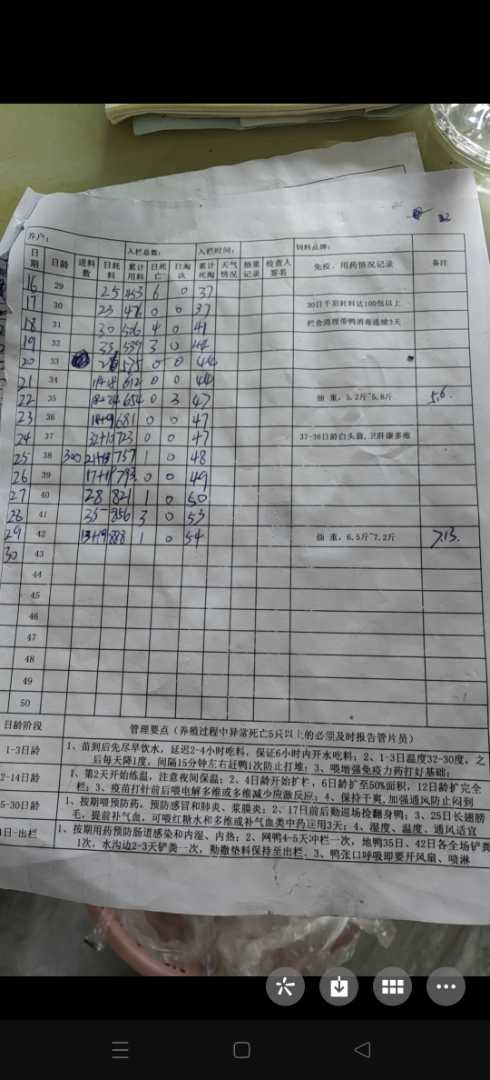 养户： 入栏总数： 入栏时间： 饲料品牌：
日期 日龄 进料数 日耗料 累计用料 日死亡 日淘汰 累计死淘 天气情况 抽重记录 检查人签名 免疫、用药情况记录 备注
16 29 25 453 6 0 37
17 30 23 476 0 0 37 30日平羽耗料达100包以上
18 31 30 506 4 0 41 栏舍清理带鸭消毒连续3天
19 32 33 539 3 0 44
20 33 575 0 0 44
21 34 612 0 0 44
22 35 654 0 3 47 抽 重，5.2斤~5.8斤 5.6.
23 36 681 0 0 47
24 37 723 0 0 47 37-38日龄白头翁，卫肝康多维
25 38 300 757 1 0 48
26 39 793 0 0 49
27 40 28 821 1 0 50
28 41 35 856 3 0 53
29 42 13+19 888 1 0 54 抽 重，6.5斤~7.2斤 7.13.
30 43
44
45
46
47
48
49
50
日龄阶段 管理要点（养殖过程中异常死亡5只以上的必须及时报告管片员）
1-3日龄 1、苗到后先尽早饮水，延迟2-4小时吃料，保证6小时内开水吃料；2、1-3日温度32-30度，之
后每天降1度，间隔15分钟左右赶鸭1次防止打堆；3、喂增强免疫力药打好基础；
2-14日龄 1、第2天开始练温，注意夜间保温；2、4日龄开始扩栏，6日龄扩至50%面积，12日龄扩完全
栏；3、疫苗打针前后喂电解多维或多维减少应激反应；4、保持干爽，加强通风防止闷到
5-30日龄 1、按期喂预防药，预防感冒和肺炎、浆膜炎；2、17日前后勤巡场检翻身鸭；3、25日长翅膀
毛，提前补气血，可喂红糖水和多维或补气血类中药连用3天；4、湿度、温度、通风适宜
日-出栏 1、按期用药预防肠道感染和内湿、内热；2、网鸭4-5天冲栏一次，地鸭35日、42日各全场铲粪
1次，水沟边2-3天铲粪一次，勤撒垫料保持至出栏、3、鸭张口呼吸即要开风扇、喷淋